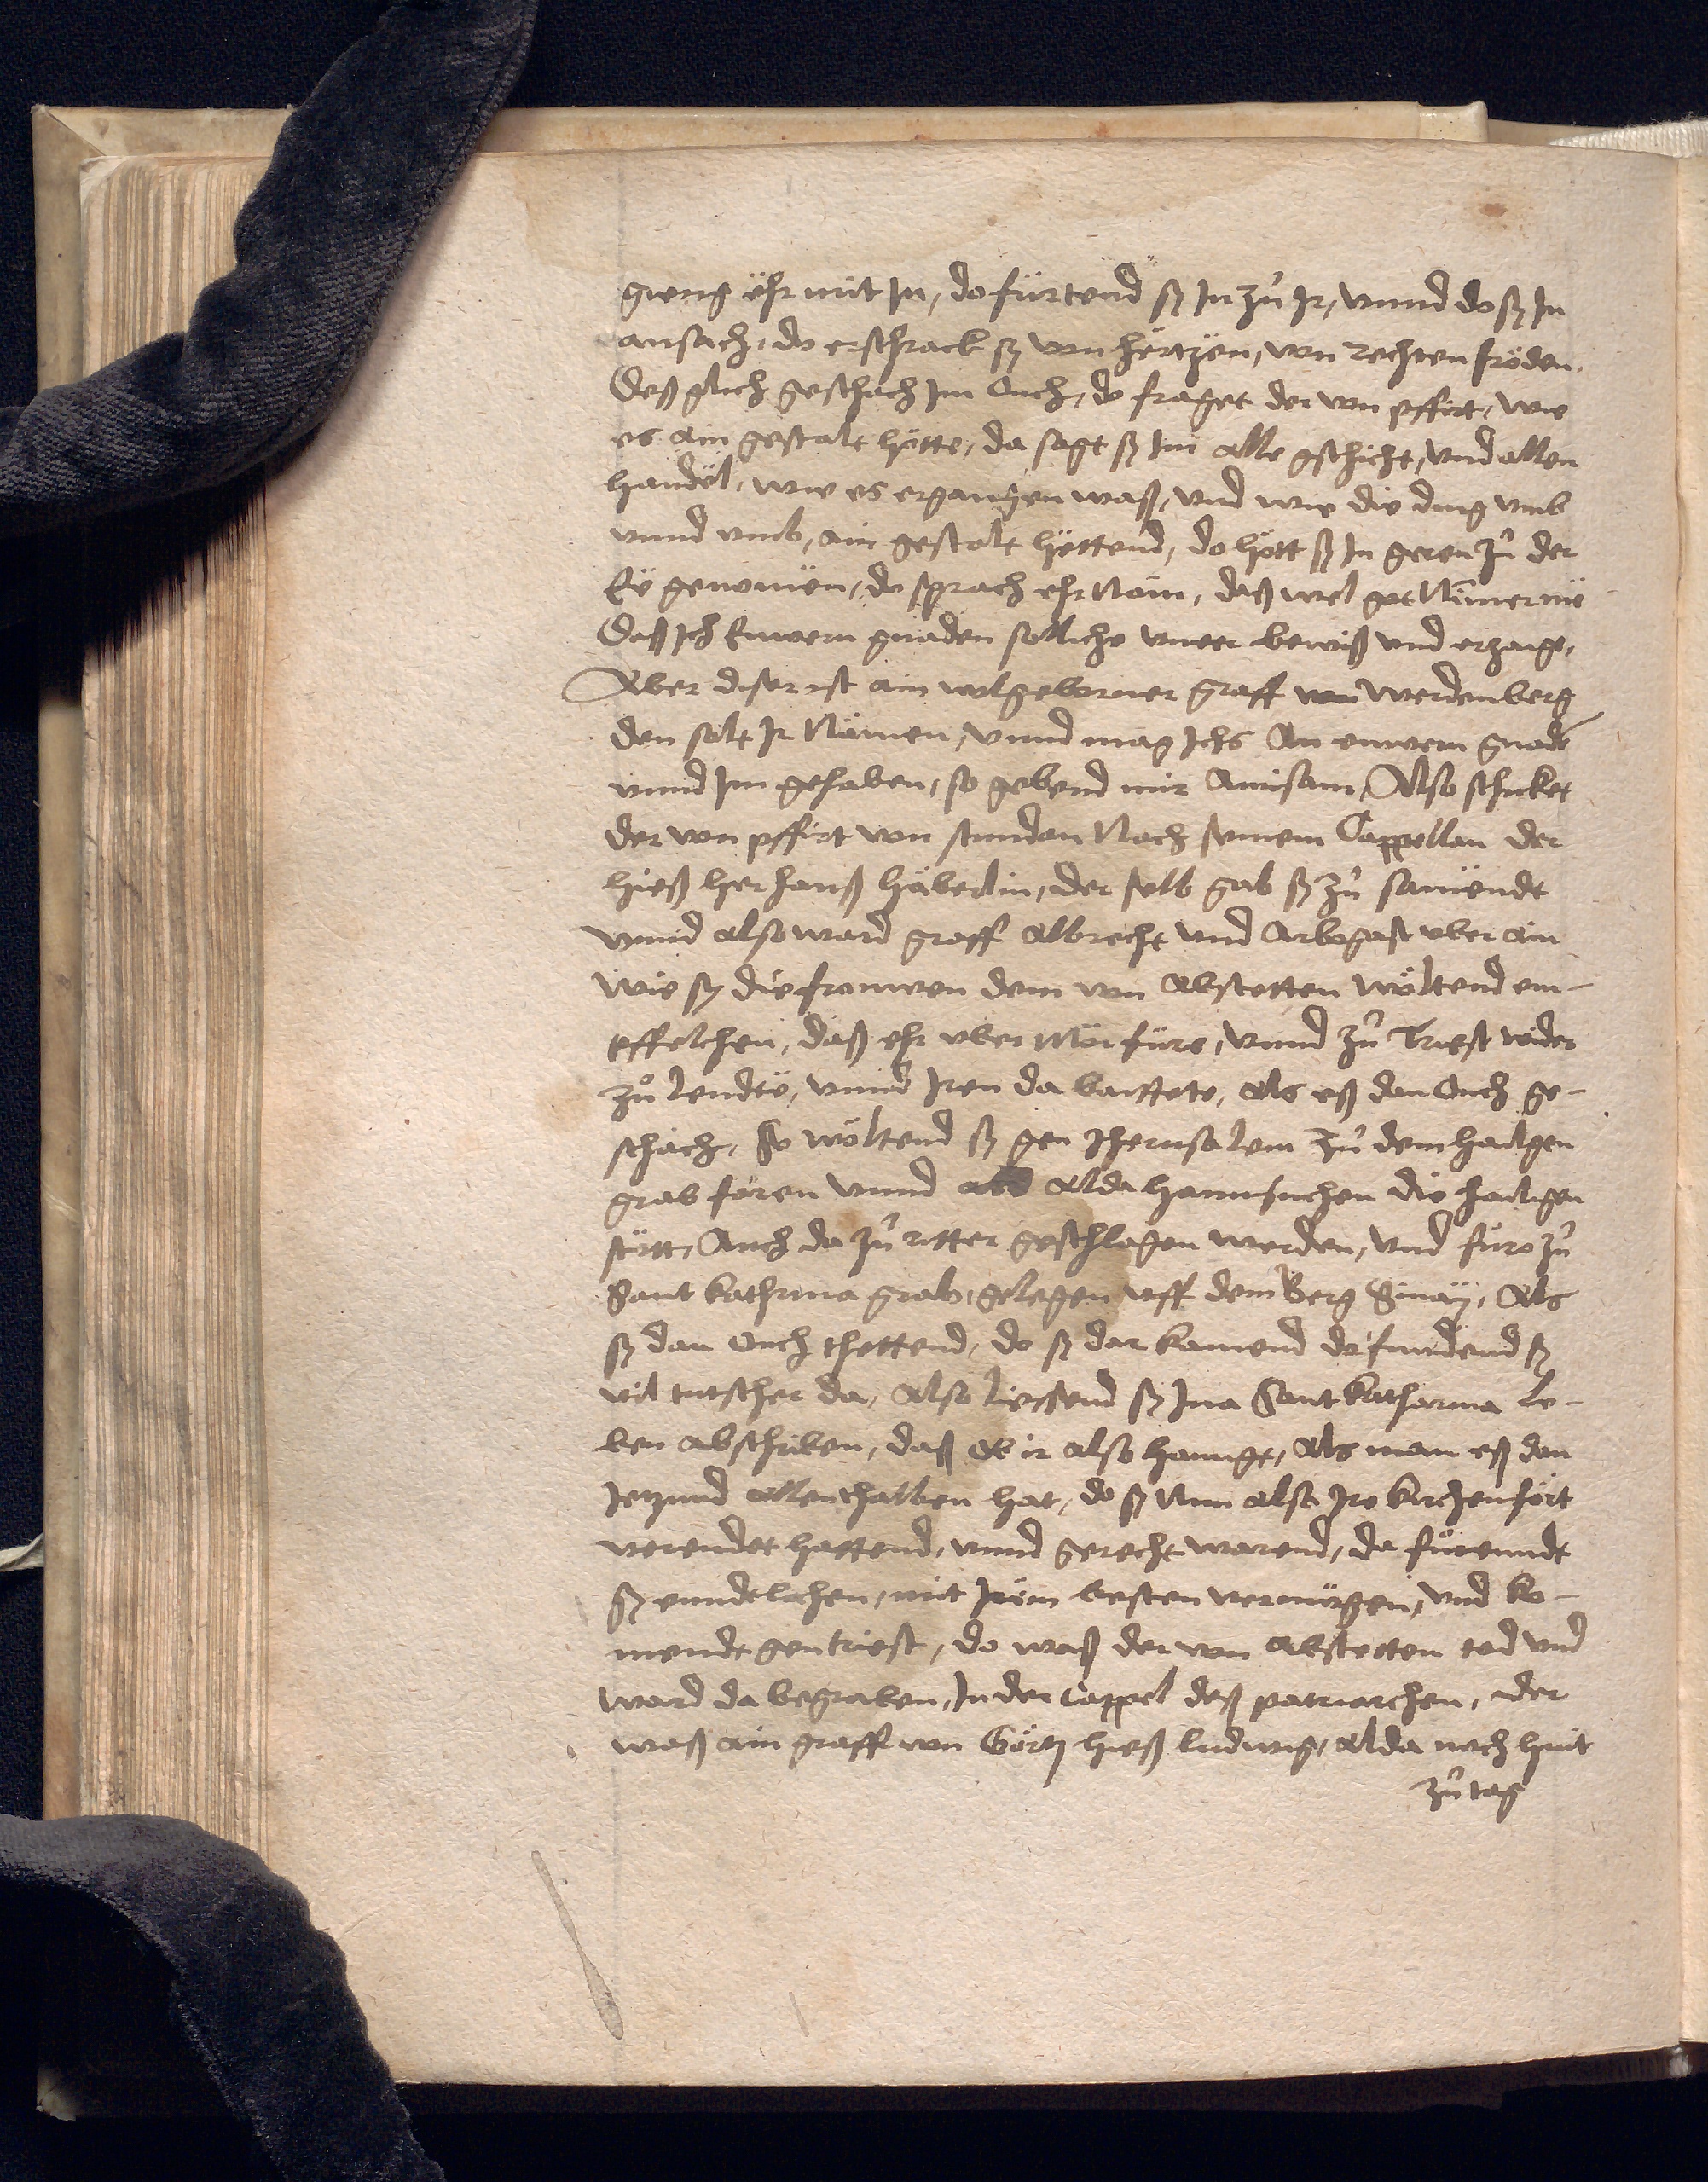 gieng ehr mit In, do fürtend sy In zů Ir, vnnd do sy In
ansach, do erschrack sy von hertzen, von rechten fröden,
Deß glich geschach Im Ouch, do fraget der von pffirt, wie
es ain gestalt hötte, da sagt sy Im alle gschicht, vnd allen
handel, wie es ergangen waß, vnd wie die ding vmb
vnnd vmb, ain gestalt hettend, do hött sy In geren zů der
Ee genomen, do sprach ehr Nain, daß wel got Nimerme
Daß Ich Euwern gnaden solliche vneer bewiß vnd erzaige,
Aber diser ist ain wolgeborner graff von Werdenberg
den solt Ir Nämen, vnnd mag Ichs An euwern gnadē
vnnd Im gehaben, so gebend mir Amisam, Also schicket
der von pffirt von stundan Nach seinem Cappellan der
hieß her hanß häberlin, der selb gab sy zů samendt
vnnd also ward graff albrecht vnd Arbogast vber ain
wie sy die frouwen dem von Abstetten wöltend em-
pffelchen, daß ehr vber Mör füre, vnnd zů Triest wider
zů lendte, vnnd Iren da bartete, als eß dan Ouch ge-
schach, So wöltend sy gen Iherusalem zů dem hailgen
grab faren vnnd alda haimsuchen die hailigen
stett, Auch da zů ritter geschlagen werden, vnd füro zů
Sant kathrina grab, gelegen vff dem Berg Sinay, Als
sy dan Ouch thettend, do sy dar kamend da fundend sy
vil tutscher da, also liessend sy Inn Sant katharina le-
ben abschriben, daß ob ir also hanngt, als man eß dan
Jetzund allenthalben hat, do sy Nun also Ire kirchenfört
verendet hattend, vnnd gerecht warend, da fůrenndt
sy enndtlichen, mit Irem besten vermügen, vnd ko-
mendt gen triest, do waß der von Abstetten tod vnd
ward da begraben, In der Cappel deß patriarchen, der
waß ain graff von Görtz hieß ludwig, alda noch hüt
zů tag